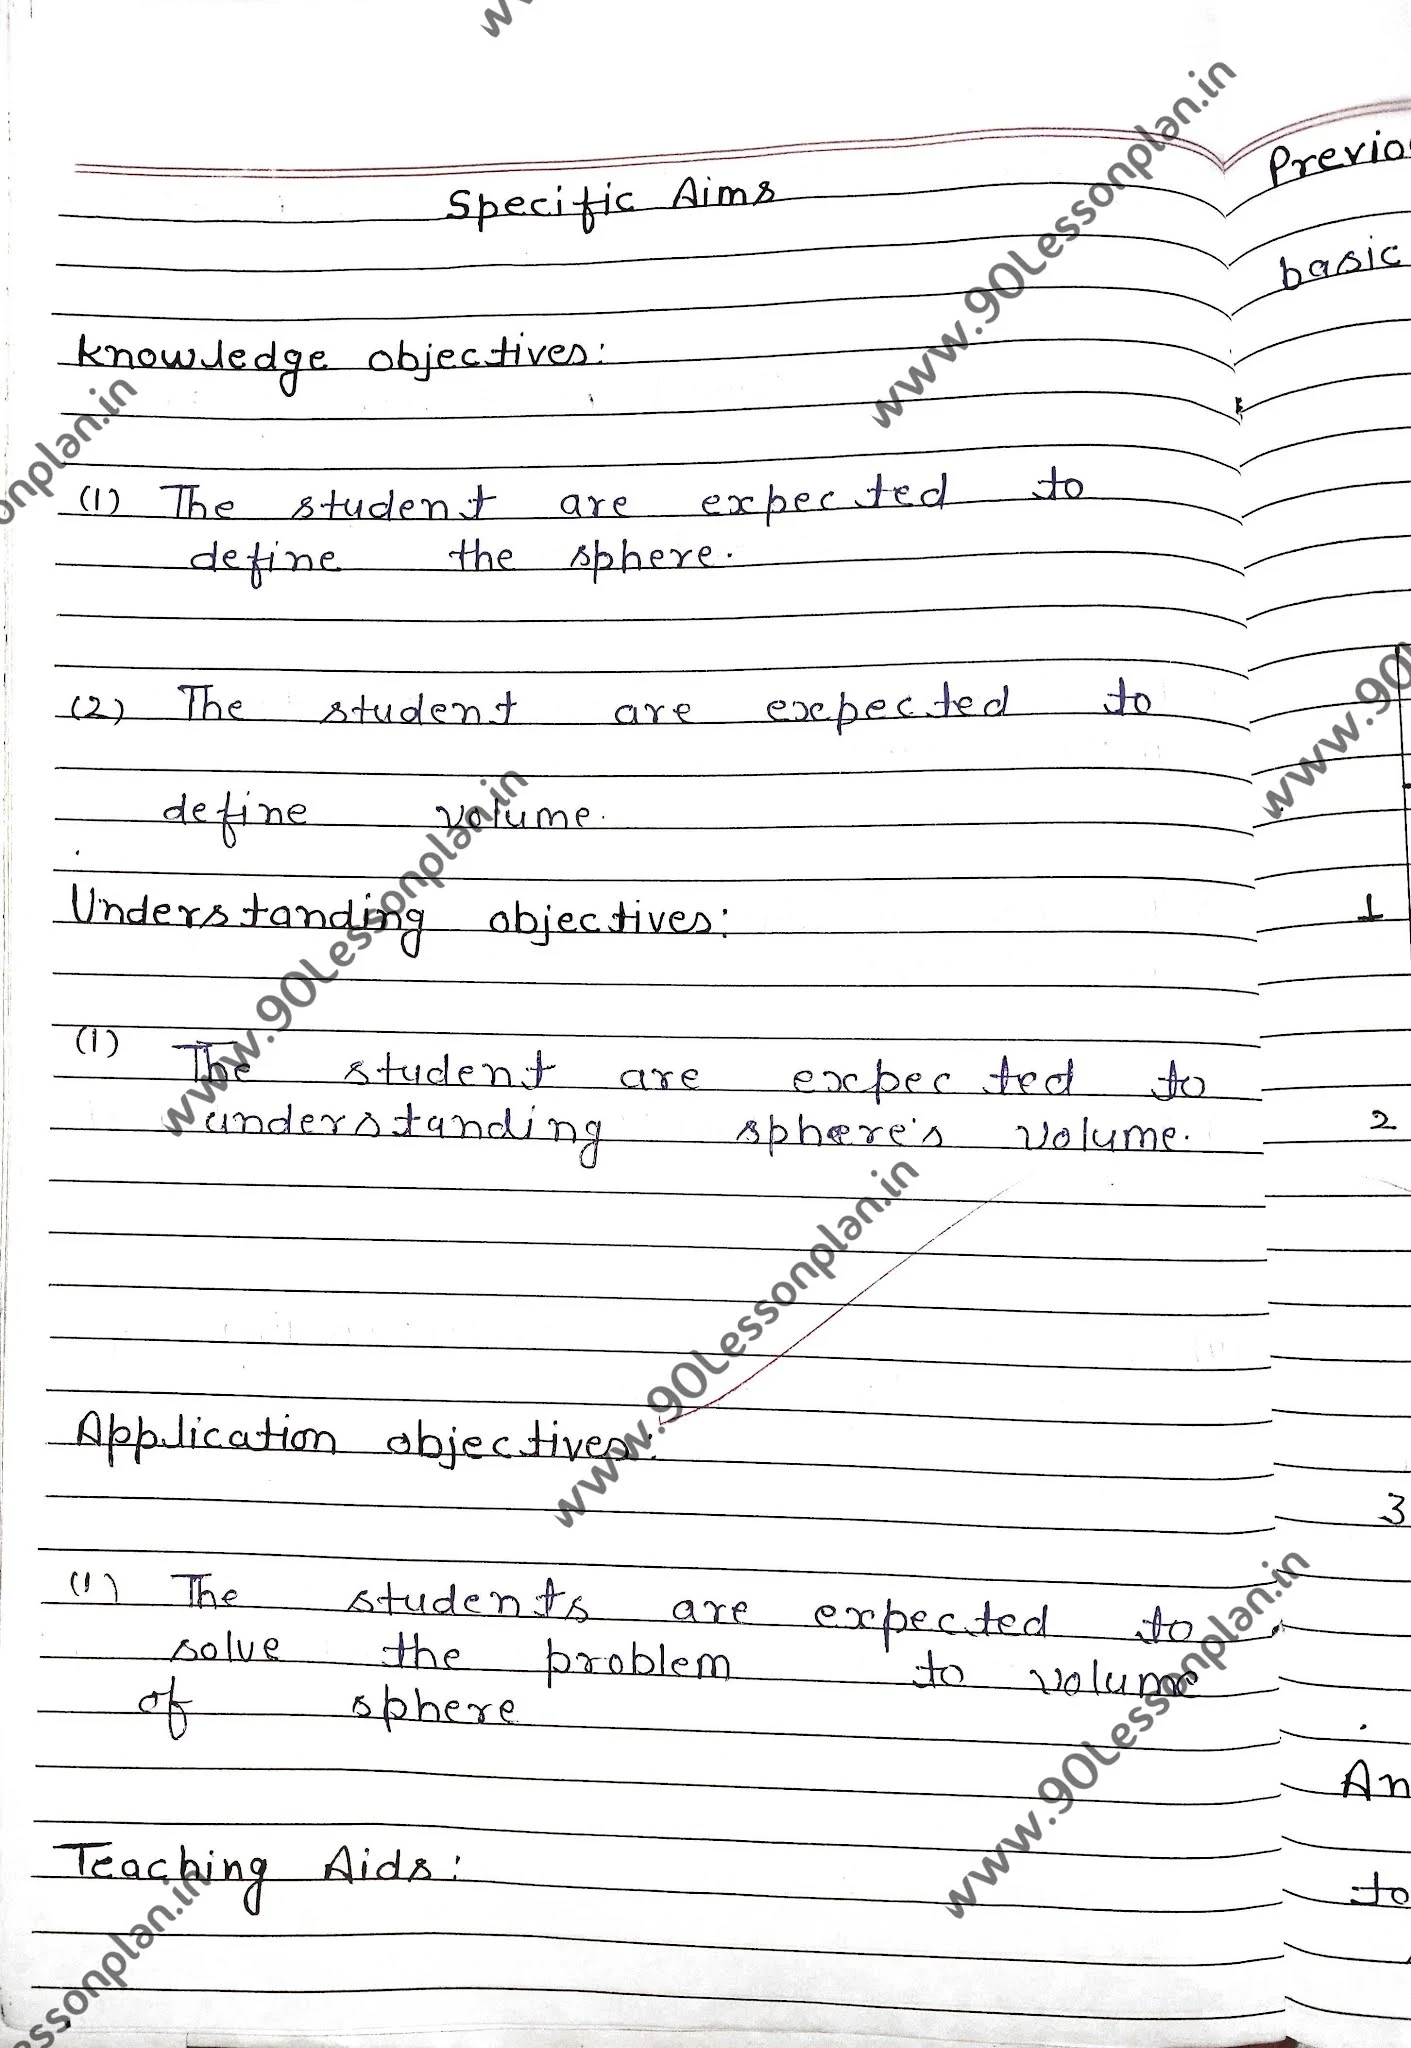 Specific Aims
Knowledge objectives:
(1) The student are expected to
define the sphere.
(2) The student are expected to
define volume.
Understanding objectives:
(1) The student are expected to
understanding sphere's volume.
Application objectives:
(1) The students are expected to
solve the problem to volume
of sphere
Teaching Aids:
basic
1
2
3
to
www.90Lessonplan.in
www.90Lessonplan.in
www.90Lessonplan.in
www.90Lessonplan.in